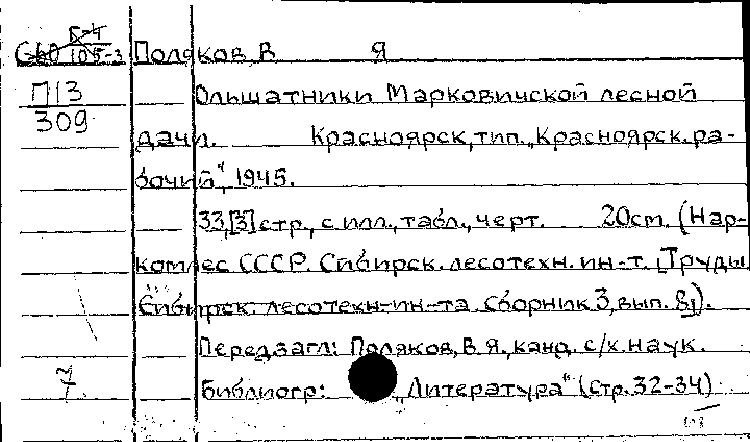 Б-4
СбО 105-3 Поляков В Я
П13
309
Ольшатники Марковичской лесной
дачи. Красноярск, тип. „Красноярск. ра-
бочий“, 1945.
33,[3] стр., с илл., табл., черт. 20см. (Нар-
комлес СССР. Сибирск. лесотехн. ин-т. [Труды
Сибирск. лесотехн-ин-та. Сборник 3, вып. 8]).
Передзагл: Поляков, В. Я., канд. с/х. наук.
7 Библиогр: „Литература“ (стр. 32-34)